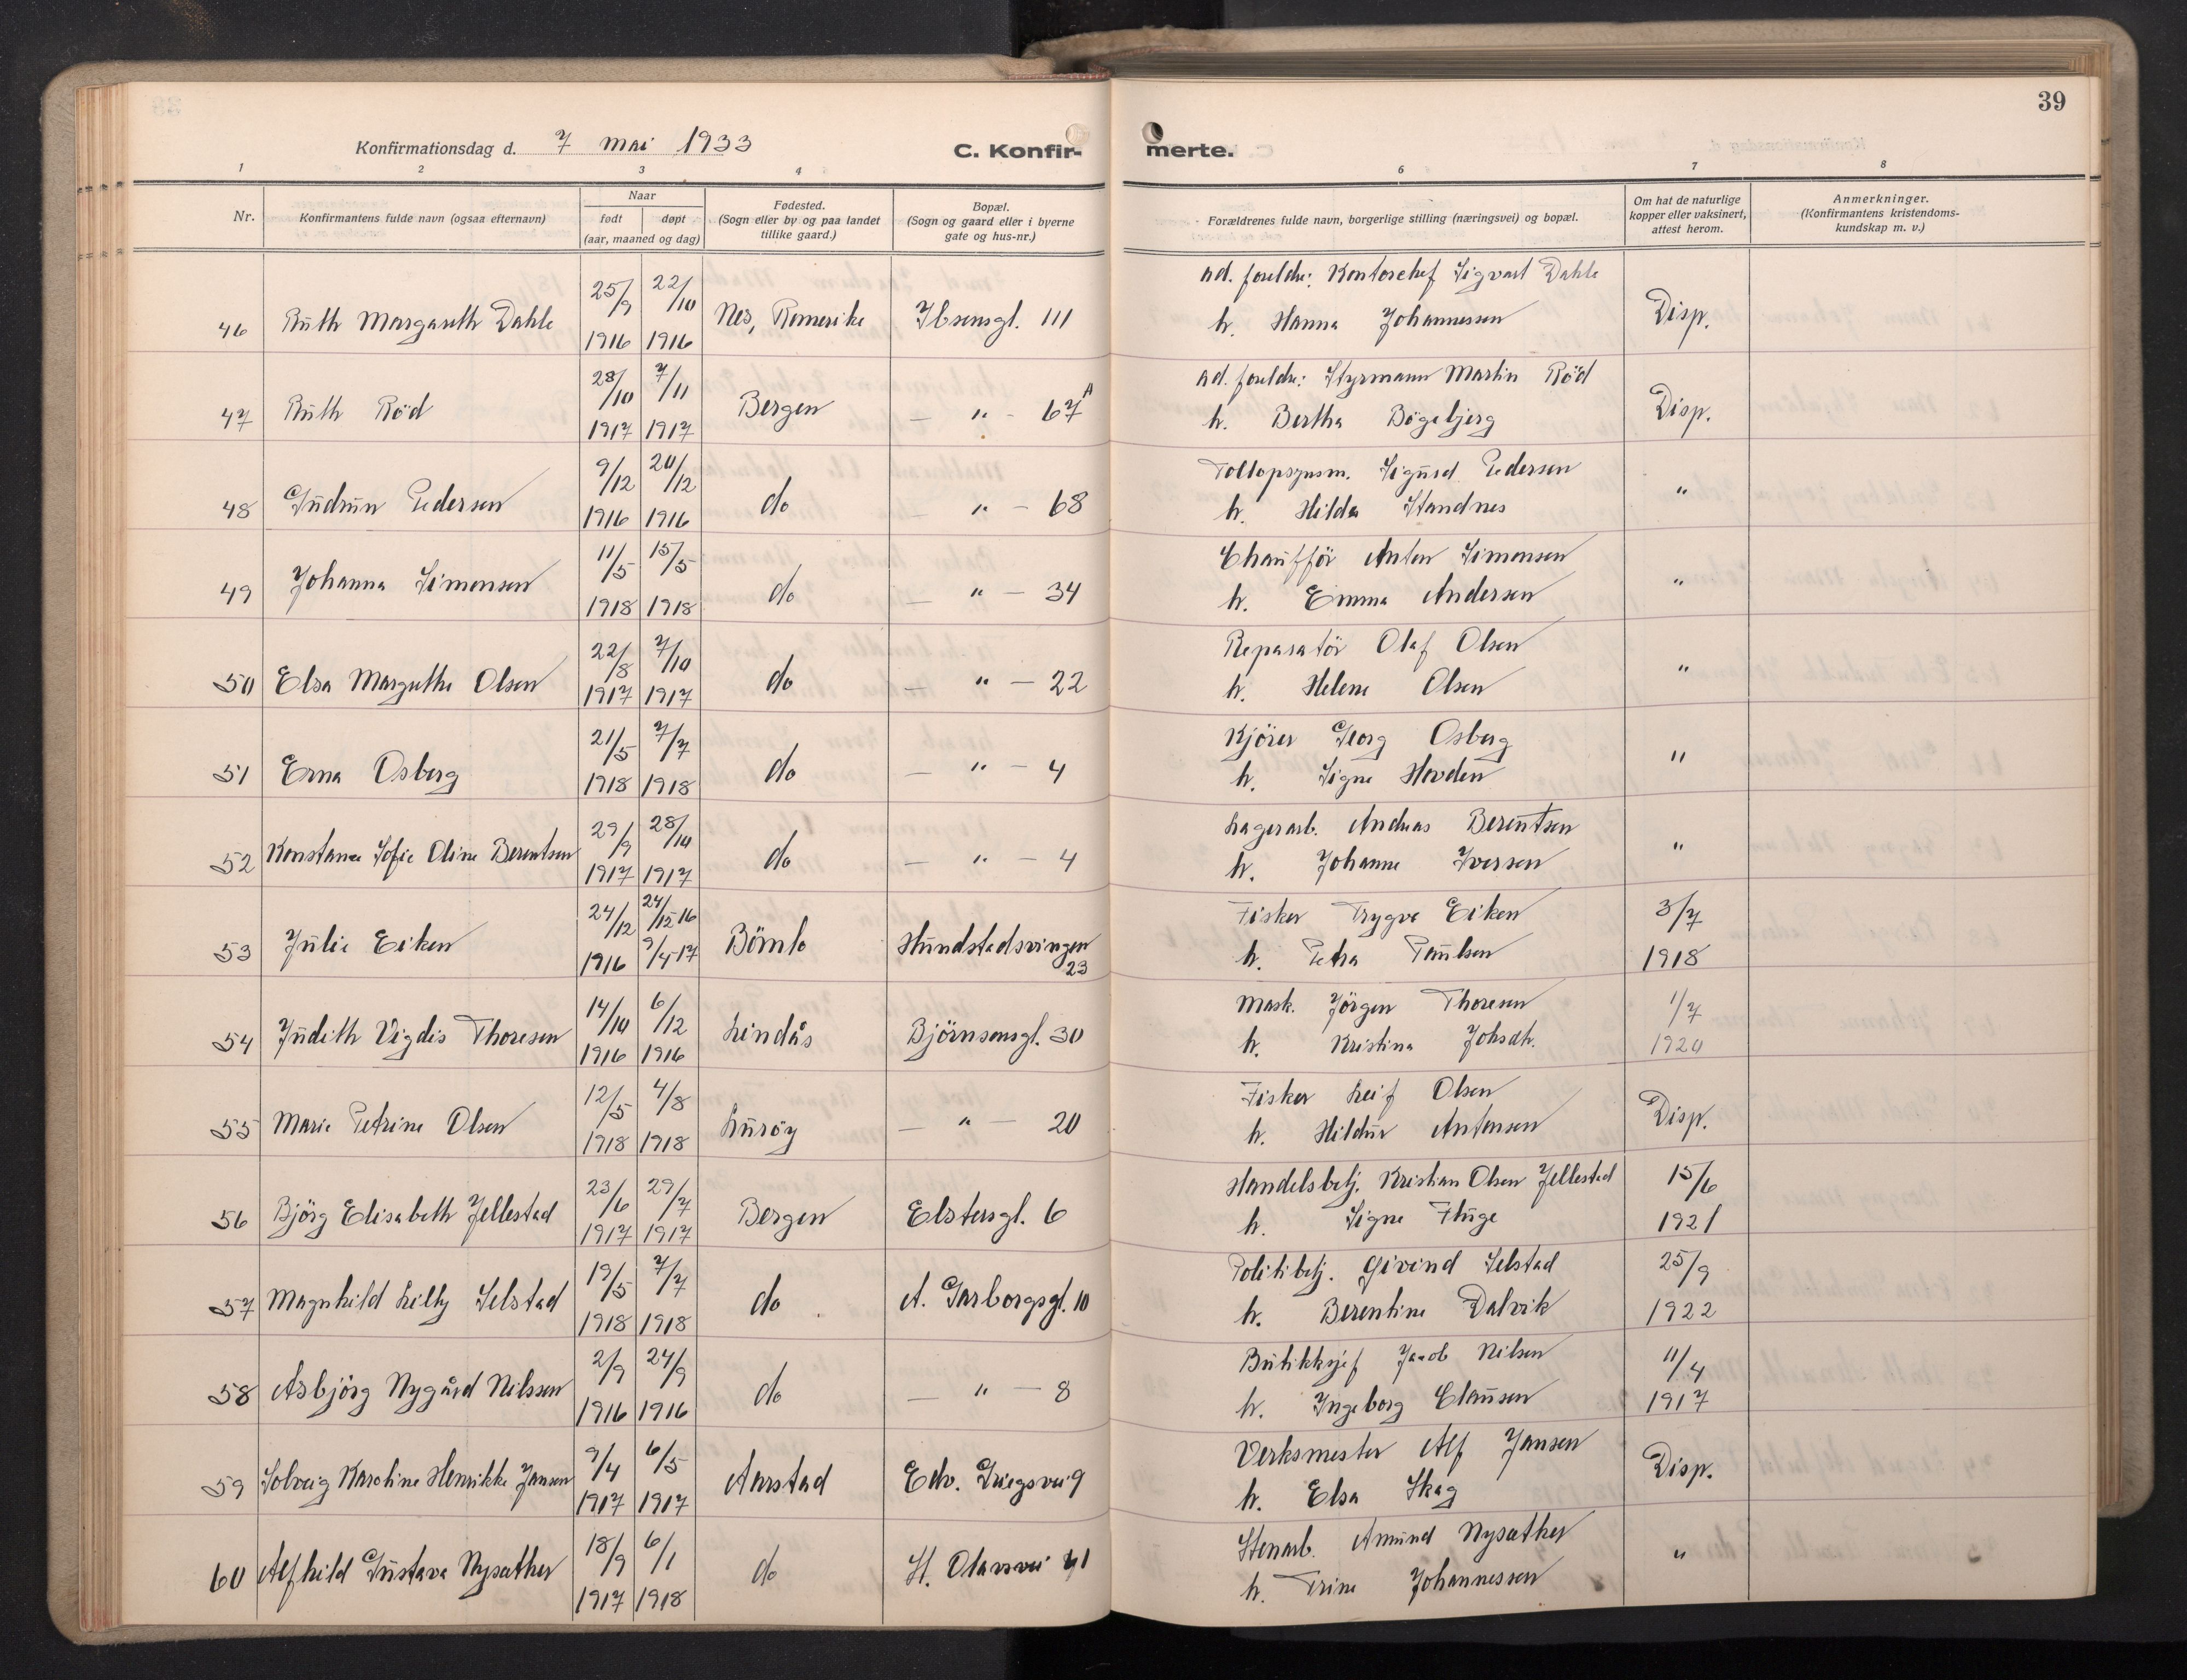 39
Konfirmationsdag d. 7 mai 1933
C. Konfir-
merte.
1 2 3 4 6 7 8
Nr.
Konfirmantens fulde navn (ogsaa efternavn)
Naar
født døpt
(aar, maaned og dag)
Fødested.
(Sogn eller by og paa landet
tillike gaard.)
Bopæl.
(Sogn og gaard eller i byerne
gate og hus-nr.)
Forældrenes fulde navn, borgerlige stilling (næringsvei) og bopæl.
Om hat de naturlige
kopper eller vaksinert,
attest herom.
Anmerkninger.
(Konfirmantens kristendoms-
kundskap m. v.)
25/9 22/10 ad. foreldre: Kontorchef Sigvart Dahle
46 Ruth Margareth Dahle 1916 1916 Nes, Romerike Ibsensgt. 111 h. Hanna Johannessen Disp.
28/10 7/11 ad. foreldre: Styrmann Martin Röd
47 Ruth Röd 1917 1917 Bergen — " — 67A h. Bertha Bögebjerg Disp.
9/12 20/12 Tollopsynsm. Sigurd Pedersen
48 Gudrun Pedersen 1916 1916 do — " — 68 h. Hilda Standnes "
11/5 15/5 Chaufför Anton Simonsen
49 Johanna Simonsen 1918 1918 do — " — 34 h. Emma Andersen "
22/8 7/10 Reparatör Olaf Olsen
50 Elsa Margrethe Olsen 1917 1917 do — " — 22 h. Helene Olsen "
21/5 7/7 Kjörer Georg Osberg
51 Erna Osberg 1918 1918 do — " — 4 h. Signe Hovden "
29/9 28/10 Lagerarb. Andreas Berentsen
52 Konstanse Sofie Oline Berentsen 1917 1917 do — " — 4 h. Johanne Iversen "
24/12 24/12-16 Fisker Trygve Eiken 3/7
53 Julie Eiken 1916 9/4-17 Bömlo Hundstadsvingen 23 h. Petra Paulsen 1918
14/10 6/12 Mask. Jörgen Thoresen 1/7
54 Judith Vigdis Thoresen 1916 1916 Lindås Björnsonsgt. 30 h. Kristina Johsdtr. 1920
12/5 4/8 Fisker Leif Olsen
55 Marie Petrine Olsen 1918 1918 Luröy — " — 20 h. Hildur Antonsen Disp.
23/6 29/7 Handelsbetj. Kristian Olsen Jellestad 15/6
56 Björg Elisabeth Jellestad 1917 1917 Bergen Elstersgt. 6 h. Signe Fluge 1921
19/5 7/7 Politibetj. Eivind Selstad 25/9
57 Magnhild Lilly Selstad 1918 1918 do A. Garborgsgt. 10 h. Berentine Dalvik 1922
2/9 24/9 Butikksjef Jacob Nilsen 11/4
58 Asbjörg Nygård Nilssen 1916 1916 do — " — 8 h. Ingeborg Clausen 1917
9/4 6/5 Verksmester Alf Jansen
59 Solveig Karoline Henrikke Jansen 1917 1917 Aarstad Edv. Griegsvei 9 h. Elsa Skag Disp.
18/9 6/1 Stenarb. Amund Nysæther
60 Alfhild Gustava Nysæther 1917 1918 do St. Olavsvei 41 h. Trine Johannessen "